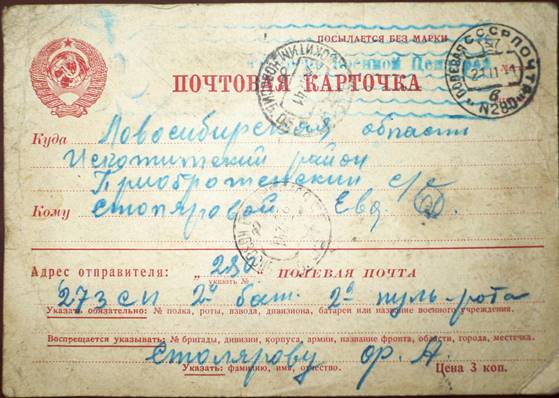 ПОСЫЛАЕТСЯ БЕЗ МАРКИ
Военной Цензурой
ПОЛЕВАЯ СССР ПОЧТА
ПОЧТОВАЯ КАРТОЧКА
6
Куда Новосибирская области
Искитимский район
Приоброженский с/с
Кому Столяровой Евд
Адрес отправителя: „ 280 " ПОЛЕВАЯ ПОЧТА
указать №
273 сп 2й бат. 2й пуль-рота
Указать обязательно: № полка, роты, взвода, дивизиона, батареи или название военного учреждения.
Воспрещается указывать: № бригады, дивизии, корпуса, армии, название фронта, области, города, местечка.
Столярову А.
Указать: фамилию, имя, отчество.
Цена 3 коп.